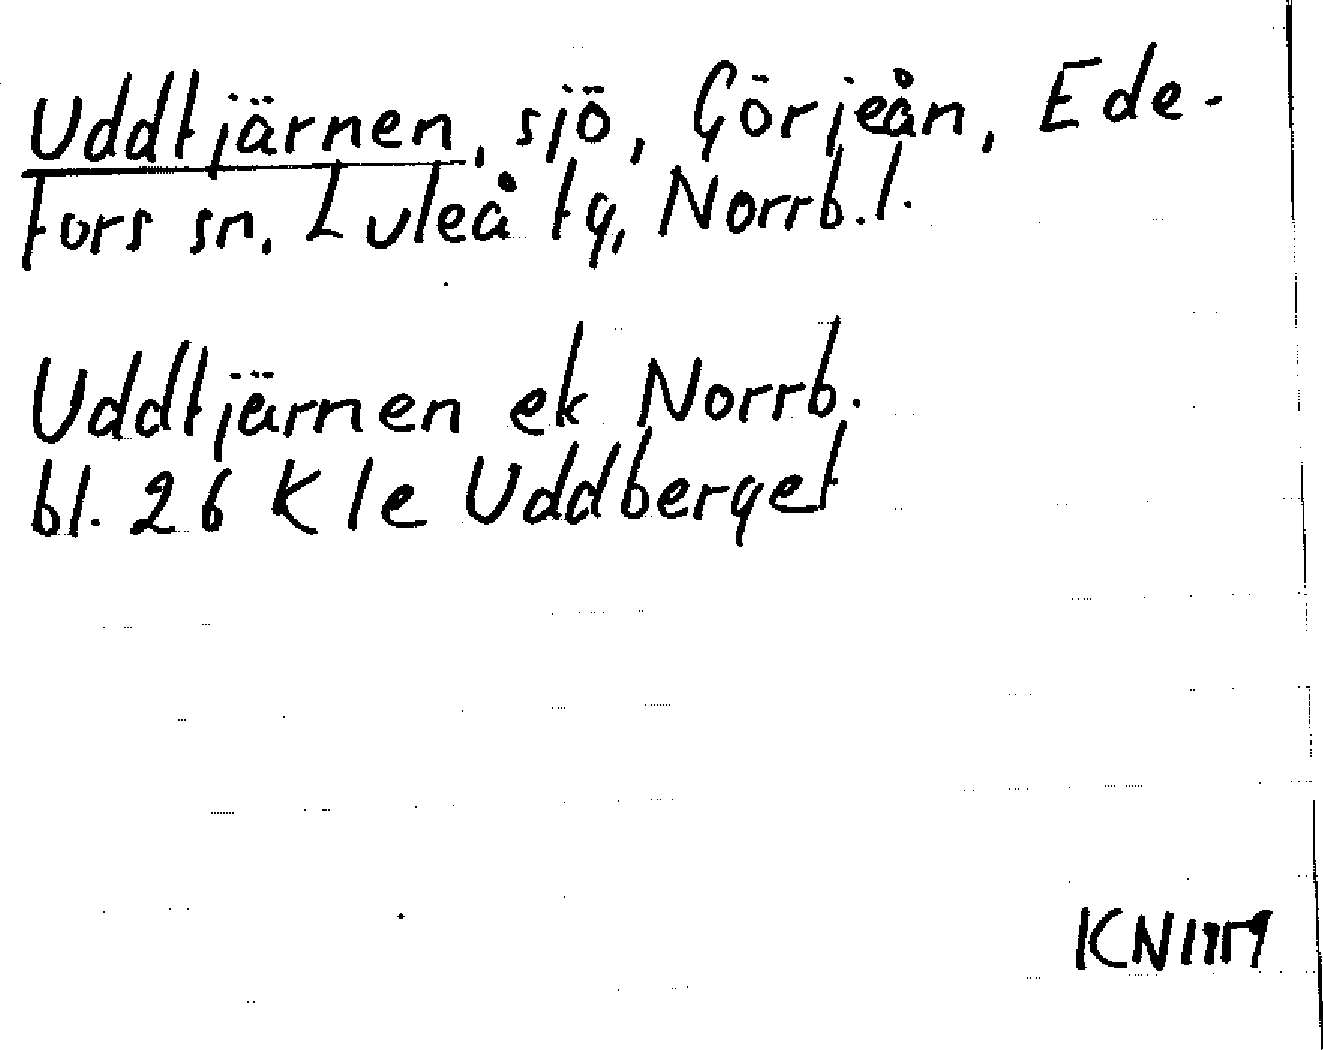 Uddtjärnen, sjö, Görjeån, Ede-
fors sn. Luleå tg, Norrb.l.
Uddtjärnen ek Norrb.
bl. 26 K le Uddberget
KN1959